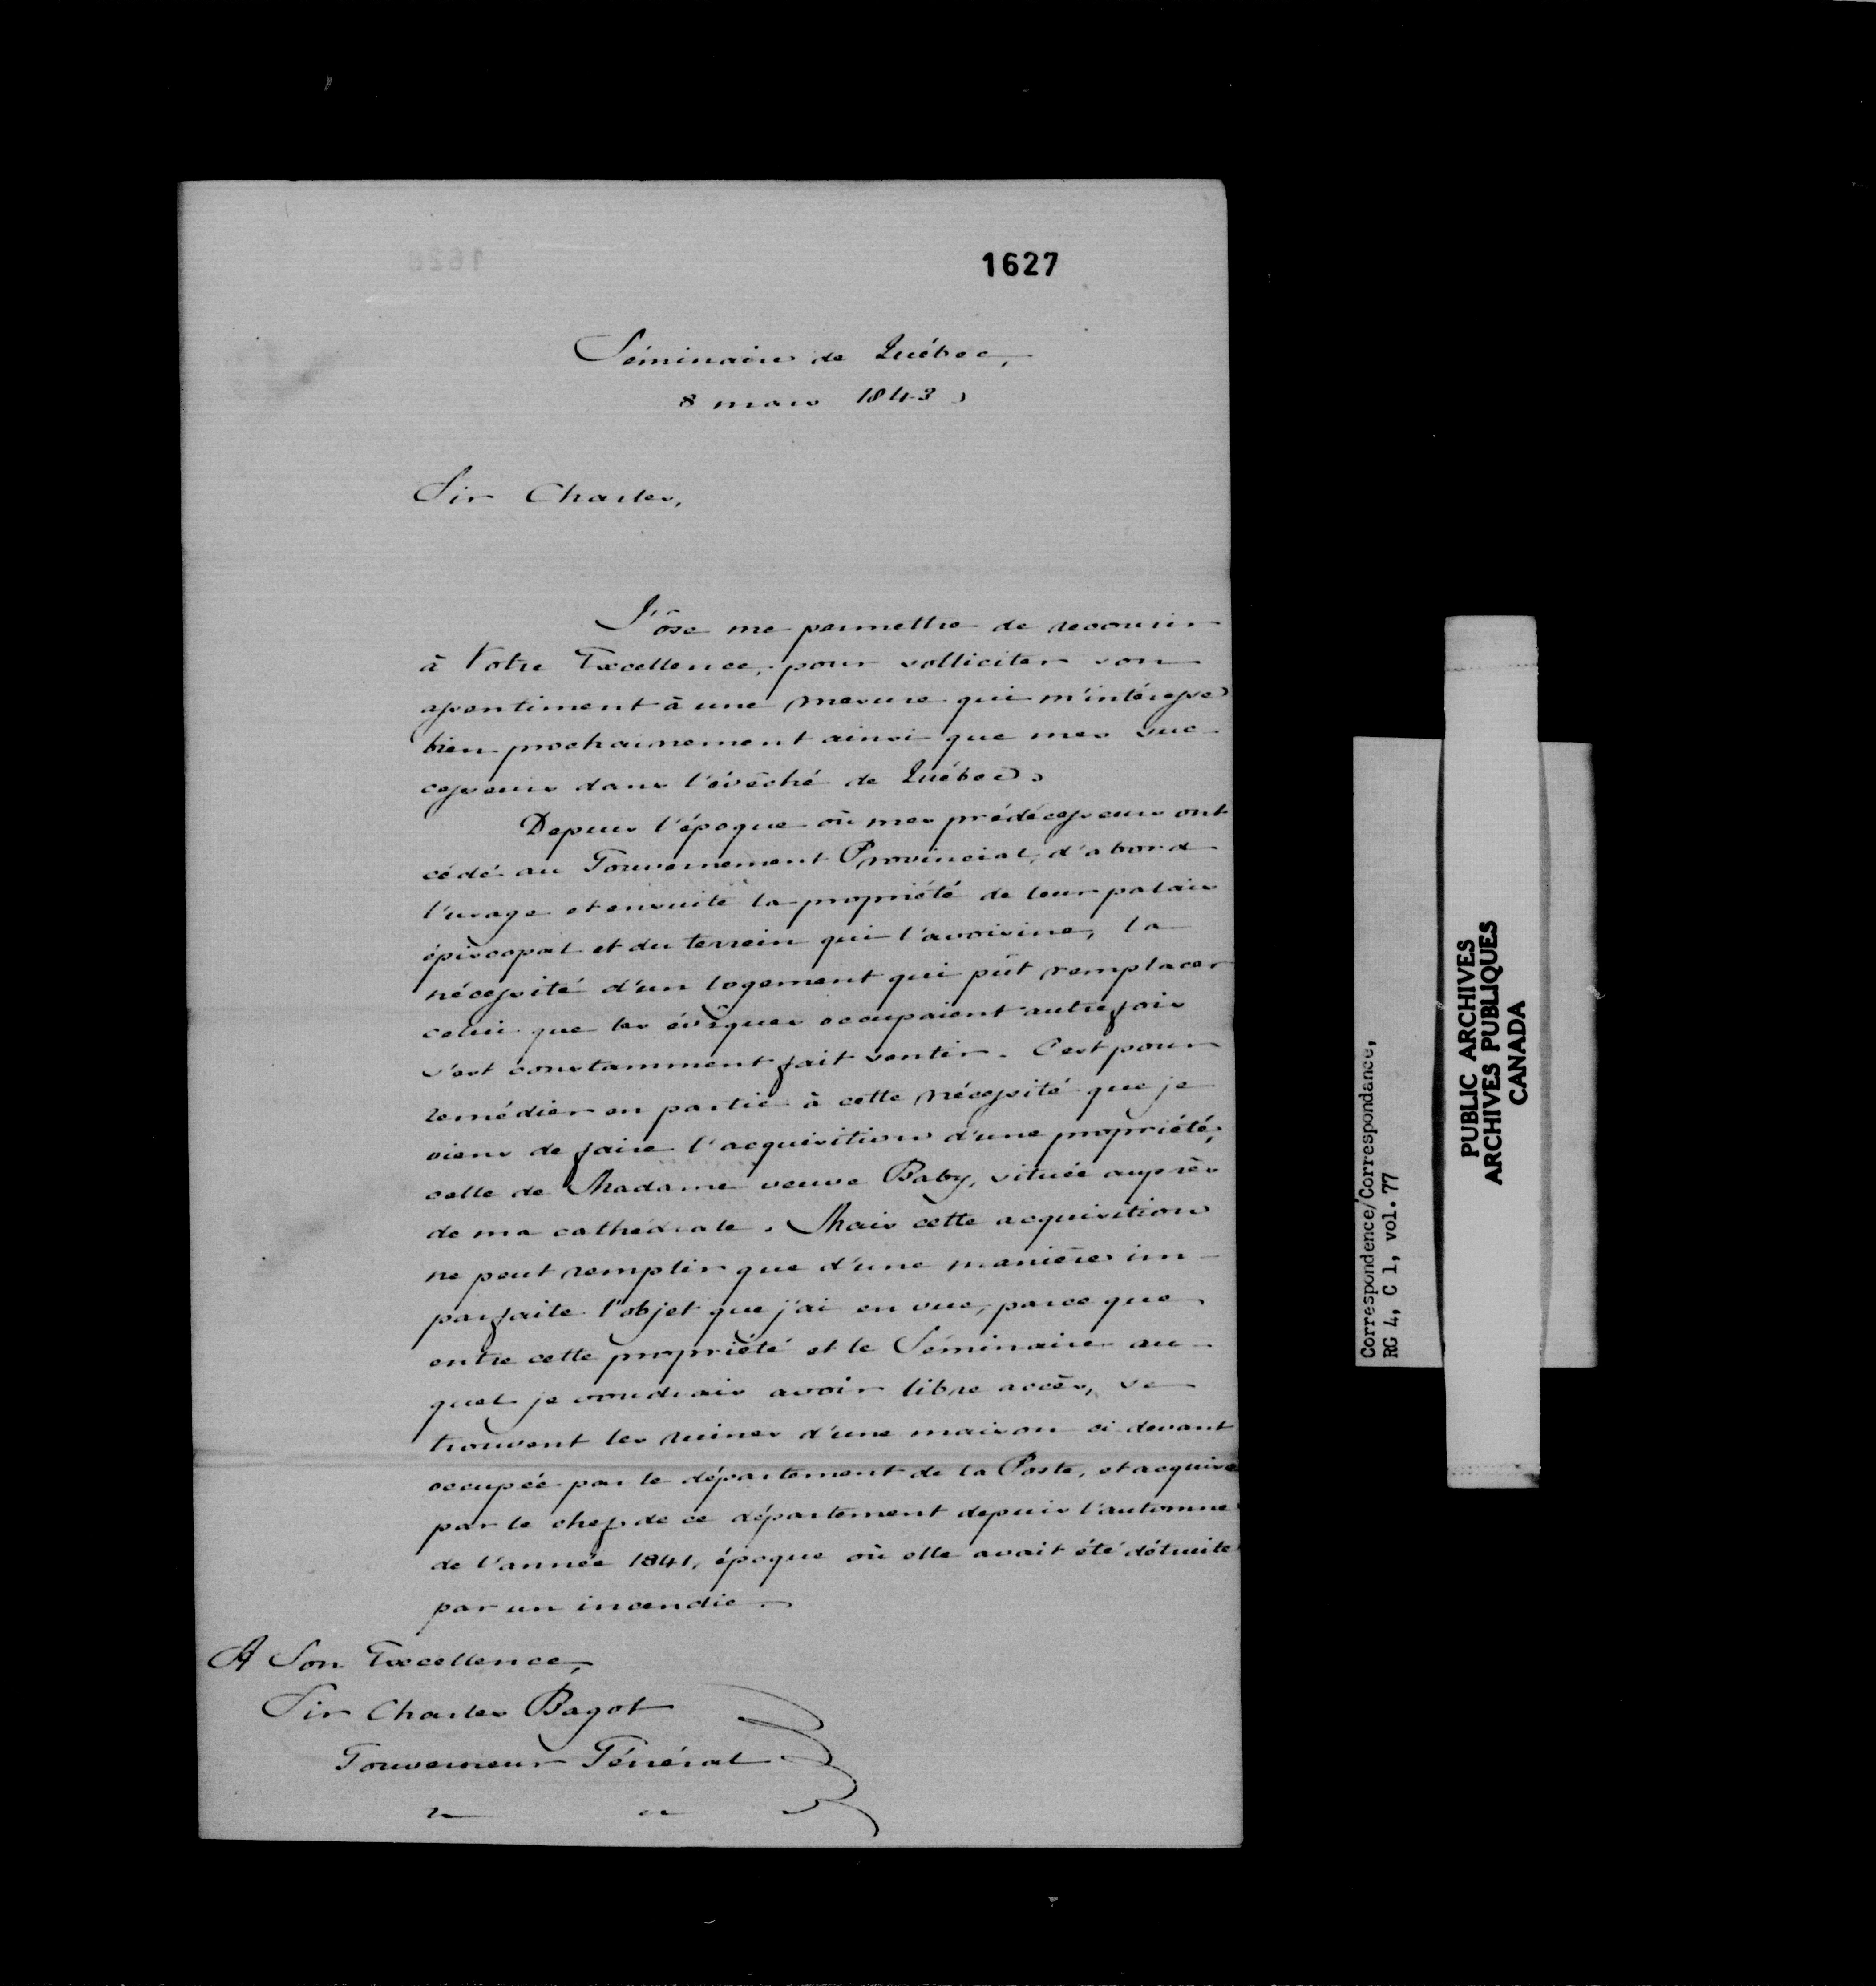 1627
Séminaire de Québec,
8 mars 1843.
Sir Charles,
J'ôse me permettre de recourir
à Votre Excellence, pour solliciter son
assentiment à une mesure qui m'intéresse
bien prochainement ainsi que mes suc-
cesseurs dans l'évêché de Québec.
Depuis l'époque où mes prédécesseurs ont
cédé au Gouvernement Provincial, d'abord
l'usage et ensuite la propriété de leur palais
épiscopal et du terrein qui l'avoisine, la
nécessité d'un logement qui pût remplacer
celui que les évêques occupaient autrefois
s'est constamment fait sentir. C'est pour
remédier en partie à cette nécessité que je
viens de faire l'acquisition d'une propriété,
celle de Madame veuve Baby, située auprès
de ma cathédrale. Mais cette acquisition
ne peut remplir que d'une manière im-
parfaite l'objet que j'ai en vue, parce que
entre cette propriété et le Séminaire au-
quel je voudrais avoir libre accès, se
trouvent les ruines d'une maison ci devant
occupée par le département de la Poste, et acquise
par le chef de ce département depuis l'automne
de l'année 1841, époque où elle avait été détruite
par un incendie.
A Son Excellence,
Sir Charles Bagot
Gouverneur Général
Correspondence/Correspondance,
RG 4, C 1, vol. 77
PUBLIC ARCHIVES
ARCHIVES PUBLIQUES
CANADA